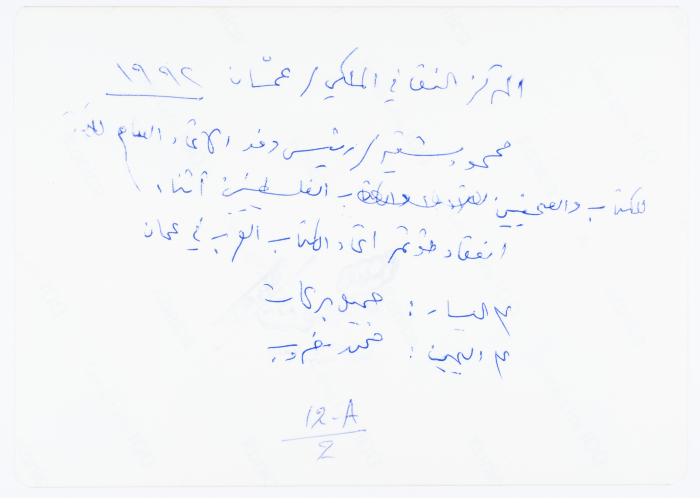 المركز الثقافي الملكي / عمّان ١٩٩٢
محمود شقير / رئيس وفد الاتحاد العام
للكتاب والصحفيين الفلسطينيين أثناء
انعقاد مؤتمر اتحاد الكتاب العرب في عمان
من اليسار :
من اليمين : محمد
12-A
2